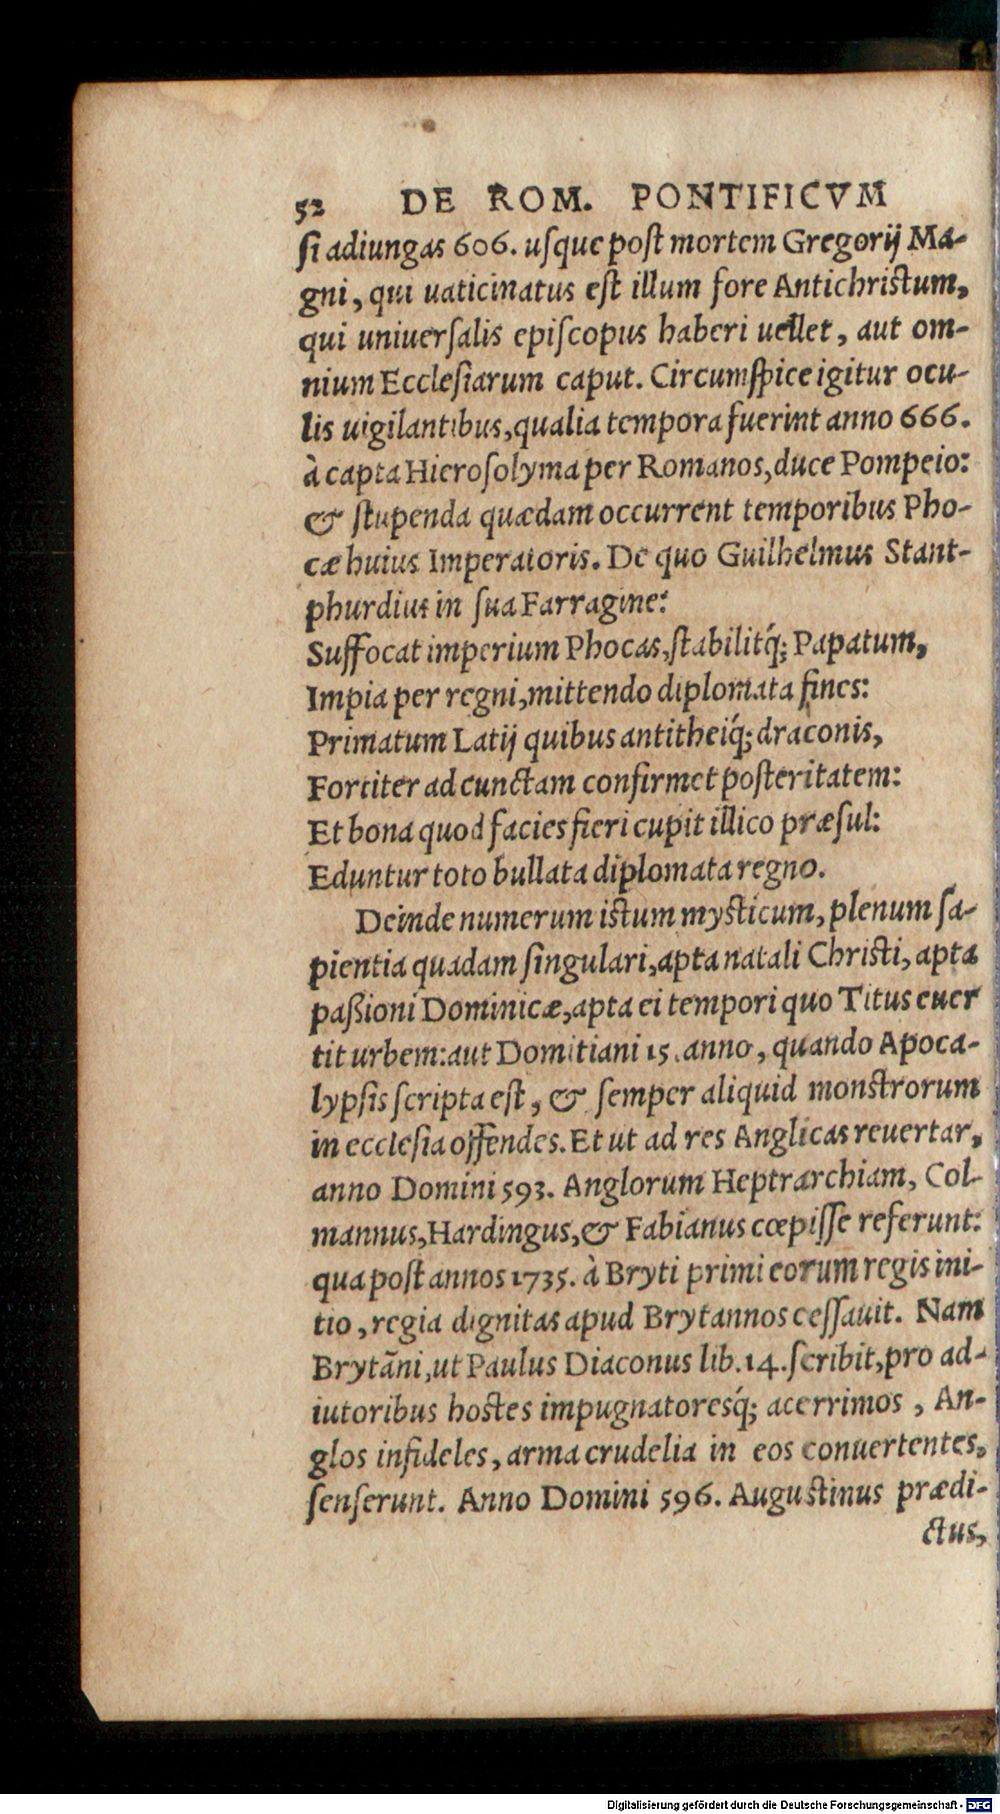 52 DE ROM. PONTIFICVM
ſi adiungas 606. uſque poſt mortem Gregorij Ma-
gni, qui uaticinatus eſt illum fore Antichriſtum,
qui uniuerſalis epiſcopus haberi uellet, aut om-
nium Eccleſiarum caput. Circumſpice igitur ocu-
lis uigilantibus, qualia tempora fuerint anno 666.
à capta Hieroſolyma per Romanos, duce Pompeio:
& ſtupenda quædam occurrent temporibus Pho-
cæ huius Imperatoris. De quo Guilhelmus Stant-
phurdius in ſua Farragine:
Suffocat imperium Phocas, ſtabilitq́; Papatum,
Impia per regni, mittendo diplomata fines:
Primatum Latij quibus antitheiq́; draconis,
Fortiter ad cunctam confirmet poſteritatem:
Et bona quod facies fieri cupit illico præſul:
Eduntur toto bullata diplomata regno.
Deinde numerum iſtum myſticum, plenum ſa-
pientia quadam ſingulari, apta natali Chriſti, apta
paßioni Dominicæ, apta ei tempori quo Titus euer
tit urbem: aut Domitiani 15. anno, quando Apoca-
lypſis ſcripta eſt, & ſemper aliquid monſtrorum
in eccleſia offendes. Et ut ad res Anglicas reuertar,
anno Domini 593. Anglorum Heptrarchiam, Col-
mannus, Hardingus, & Fabianus cœpiſſe referunt:
qua poſt annos 1735. à Bryti primi eorum regis ini-
tio, regia dignitas apud Brytannos ceſſauit. Nam
Brytãni, ut Paulus Diaconus lib. 14. ſcribit, pro ad-
iutoribus hoſtes impugnatoresq́; acerrimos, An-
glos infideles, arma crudelia in eos conuertentes,
ſenſerunt. Anno Domini 596. Auguſtinus prædi-
ctus,
Digitalisierung gefördert durch die Deutsche Forschungsgemeinschaft - DFG